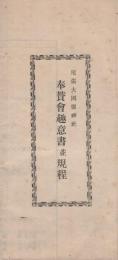 尾張大國霊神社
奉賛會趣意書並規程